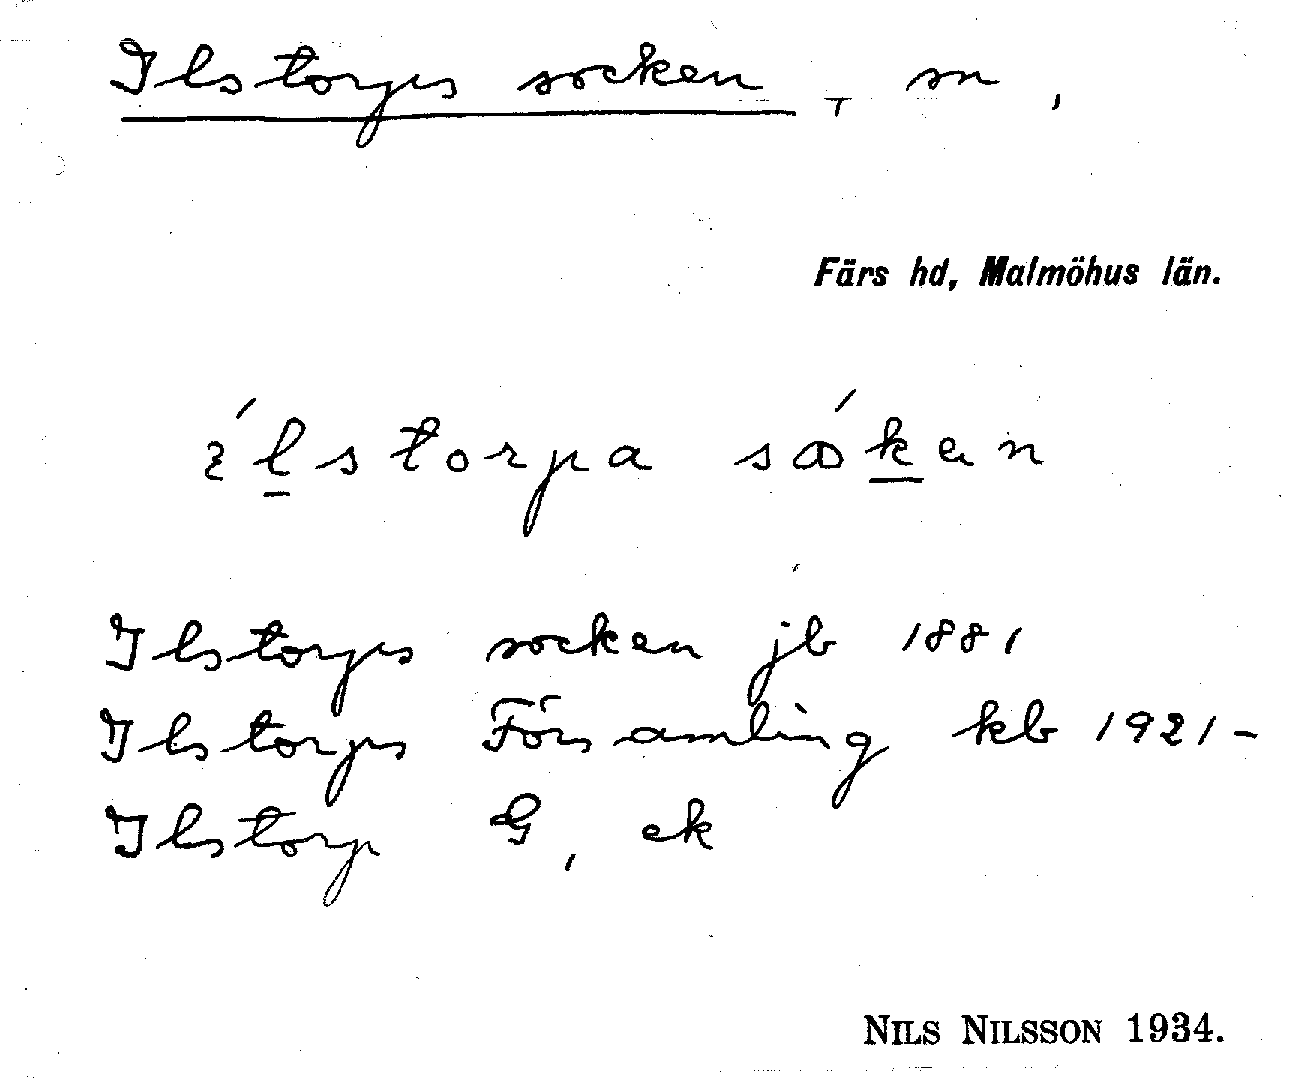 Ilstorps socken, sn,
Färs hd, Malmöhus län.
ílstorpa sókan
Ilstorps socken jb 1881
Ilstorps Församling kb 1921-
Ilstorp G, ek
NILS NILSSON 1934.